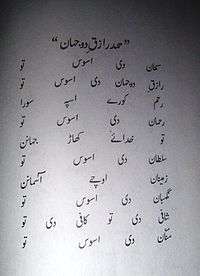 ”حمد رازق دوجہان“
سبحان دی اسوس تو
رازق دوجہان دی اسوس تو
رحم کورے اسپہ سورا
رحمان دی اسوس تو
تو خدائے کھاڑ جہانن
سلطان دی اسوس تو
زمینان اوچے آسمانن
نگہبان دی اسوس تو
شافی دی تو کافی دی تو
منان دی اسوس تو